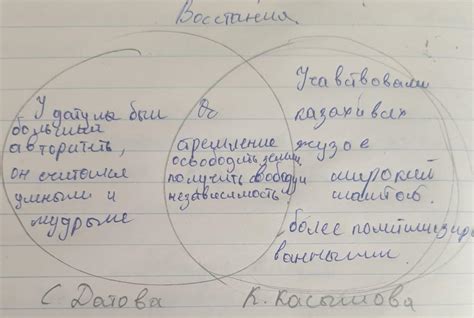 Восстания.
У датулы был
большый
авторитеть,
он считался
умным и
мудрым
стремление
освободить земли,
получить свободу и
независимость.
Учавствовали
казахи всех
жузов
широкий
масштаб.
более политизиро
ванными.
С Датова
К. Касымова